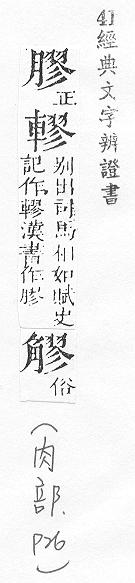 41經典文字辨證書
膠正
轇別出司馬相如賦史
記作轇漢書作膠
䚧俗
(肉部.P26)